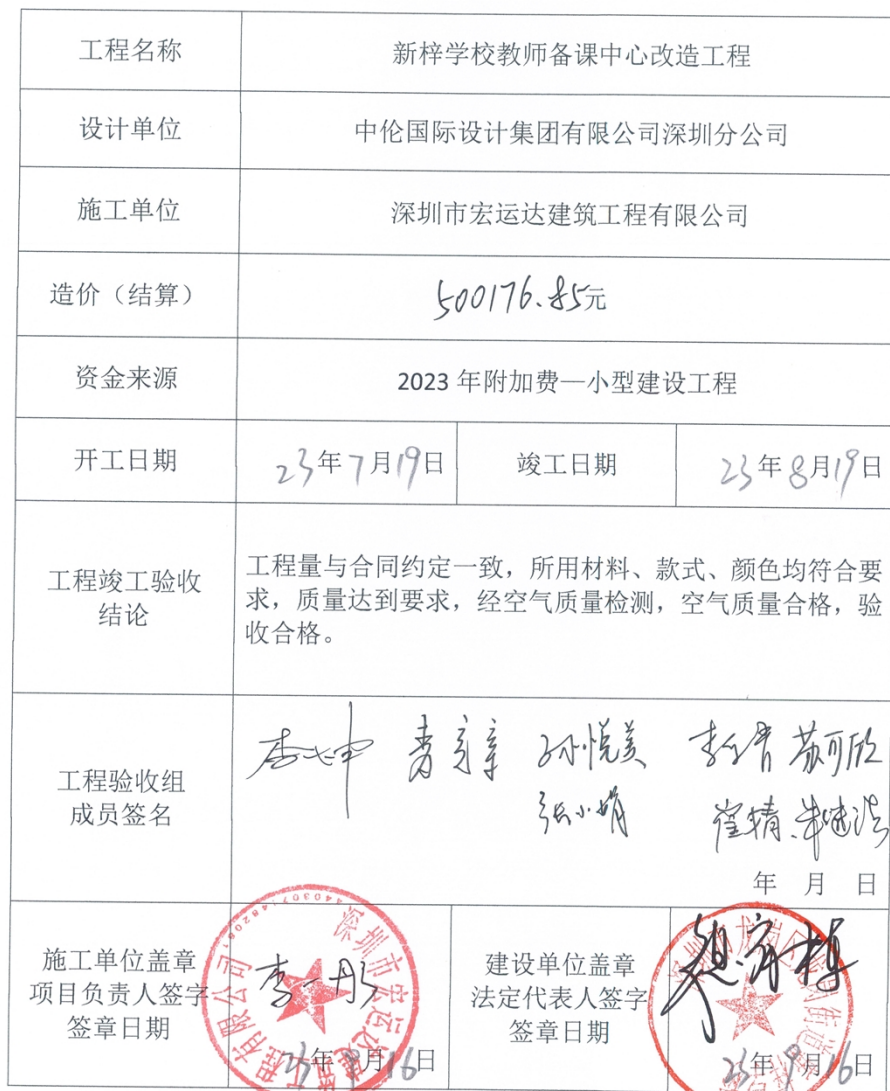 工程名称 新梓学校教师备课中心改造工程
设计单位 中伦国际设计集团有限公司深圳分公司
施工单位 深圳市宏运达建筑工程有限公司
造价（结算） 500176.85元
资金来源 2023 年附加费—小型建设工程
开工日期 23年7月19日 竣工日期 23年8月19日
工程竣工验收
结论
工程量与合同约定一致，所用材料、款式、颜色均符合要
求，质量达到要求，经空气质量检测，空气质量合格，验
收合格。
工程验收组
成员签名
孙悦美 苏可欣
张小娟 崔精
年 月 日
施工单位盖章
项目负责人签字
签章日期
李一彤
23年9月16日
深圳市宏运达建筑工程有限公司
建设单位盖章
法定代表人签字
签章日期
23年9月16日